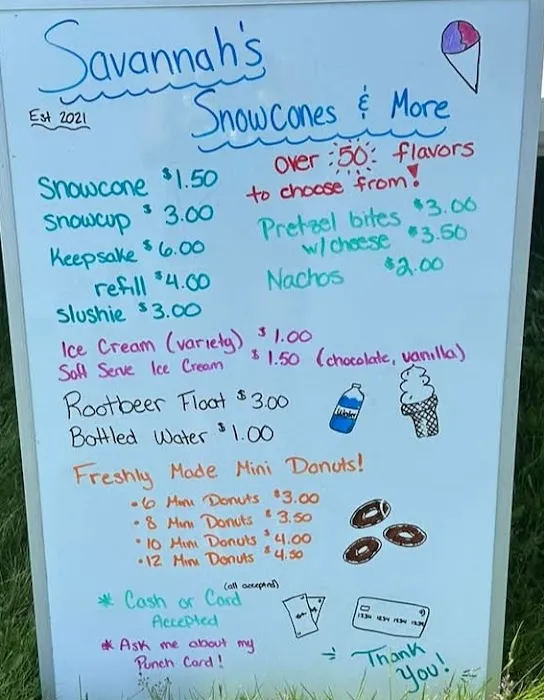 Savannah's
Est 2021
Snowcones & More
Snowcone $1.50
Snowcup $3.00
Keepsake $6.00
refill $4.00
Slushie $3.00
over 50 flavors
to choose from!
Pretzel bites $3.00
w/cheese $3.50
Nachos $2.00
Ice Cream (variety) $1.00
Soft Serve Ice Cream $1.50 (chocolate, vanilla)
Rootbeer Float $3.00
Bottled Water $1.00
Water
Freshly Made Mini Donuts!
• 6 Mini Donuts $3.00
• 8 Mini Donuts $3.50
• 10 Mini Donuts $4.00
• 12 Mini Donuts $4.50
(all accepted)
* Cash or Card
Accepted
1234 1234 1234 1234
* Ask me about my
Punch Card!
Thank
You!